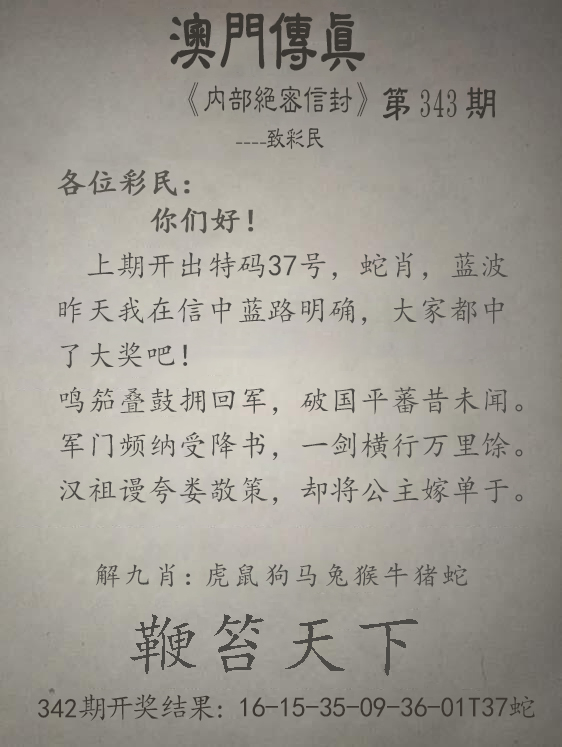 澳門傳真
《内部絕密信封》第343期
----致彩民
各位彩民：
你们好！
上期开出特码37号，蛇肖，蓝波
昨天我在信中蓝路明确，大家都中
了大奖吧！
鸣笳叠鼓拥回军，破国平蕃昔未闻。
军门频纳受降书，一剑横行万里馀。
汉祖谩夸娄敬策，却将公主嫁单于。
解九肖：虎鼠狗马兔猴牛猪蛇
鞭笞天下
342期开奖结果：16-15-35-09-36-01T37蛇